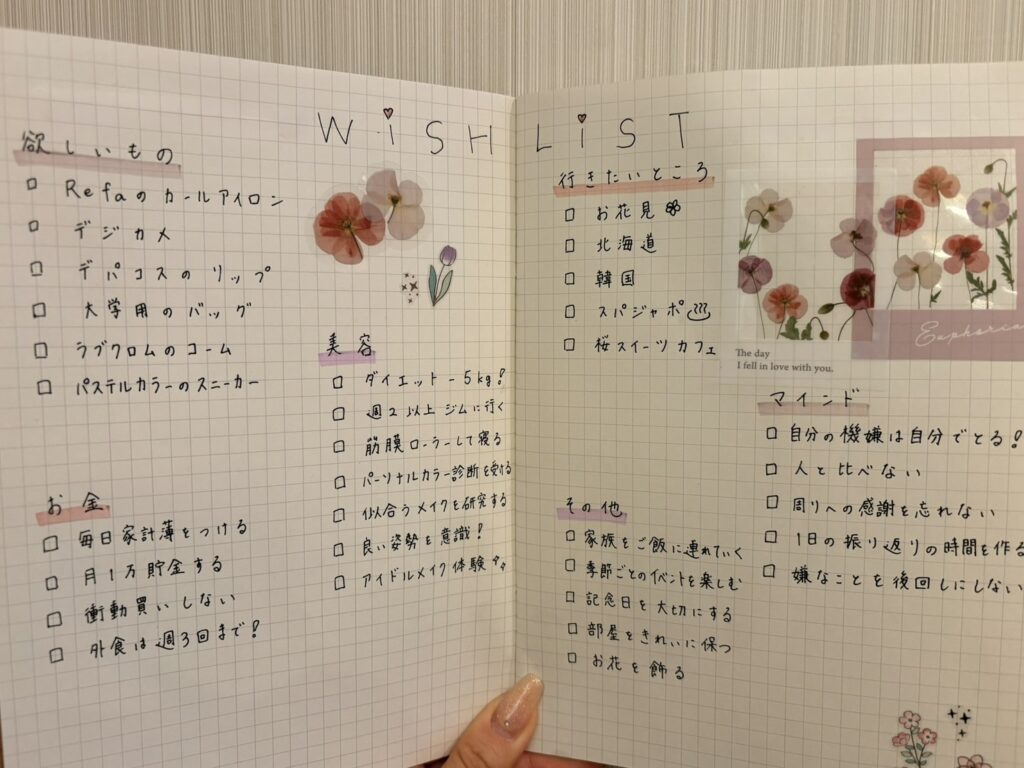 WiSH LiST
欲しいもの
□ Refaのカールアイロン
□ デジカメ
□ デパコスのリップ
□ 大学用のバッグ
□ ラブクロムのコーム
□ パステルカラーのスニーカー
お金
□ 毎日家計簿をつける
□ 月1万貯金する
□ 衝動買いしない
□ 外食は週3回まで!
美容
□ ダイエット -5kg!
□ 週2以上ジムに行く
□ 筋膜ローラーして寝る
□ パーソナルカラー診断を受ける
□ 似合うメイクを研究する
□ 良い姿勢を意識!
□ アイドルメイク体験
行きたいところ
□ お花見
□ 北海道
□ 韓国
□ スパジャポ
□ 桜スイーツカフェ
その他
□ 家族をご飯に連れていく
□ 季節ごとのイベントを楽しむ
□ 記念日を大切にする
□ 部屋をきれいに保つ
□ お花を飾る
The day
I fell in love with you.
Euphoria
マインド
□ 自分の機嫌は自分でとる!
□ 人と比べない
□ 周りへの感謝を忘れない
□ 1日の振り返りの時間を作る
□ 嫌なことを後回しにしない